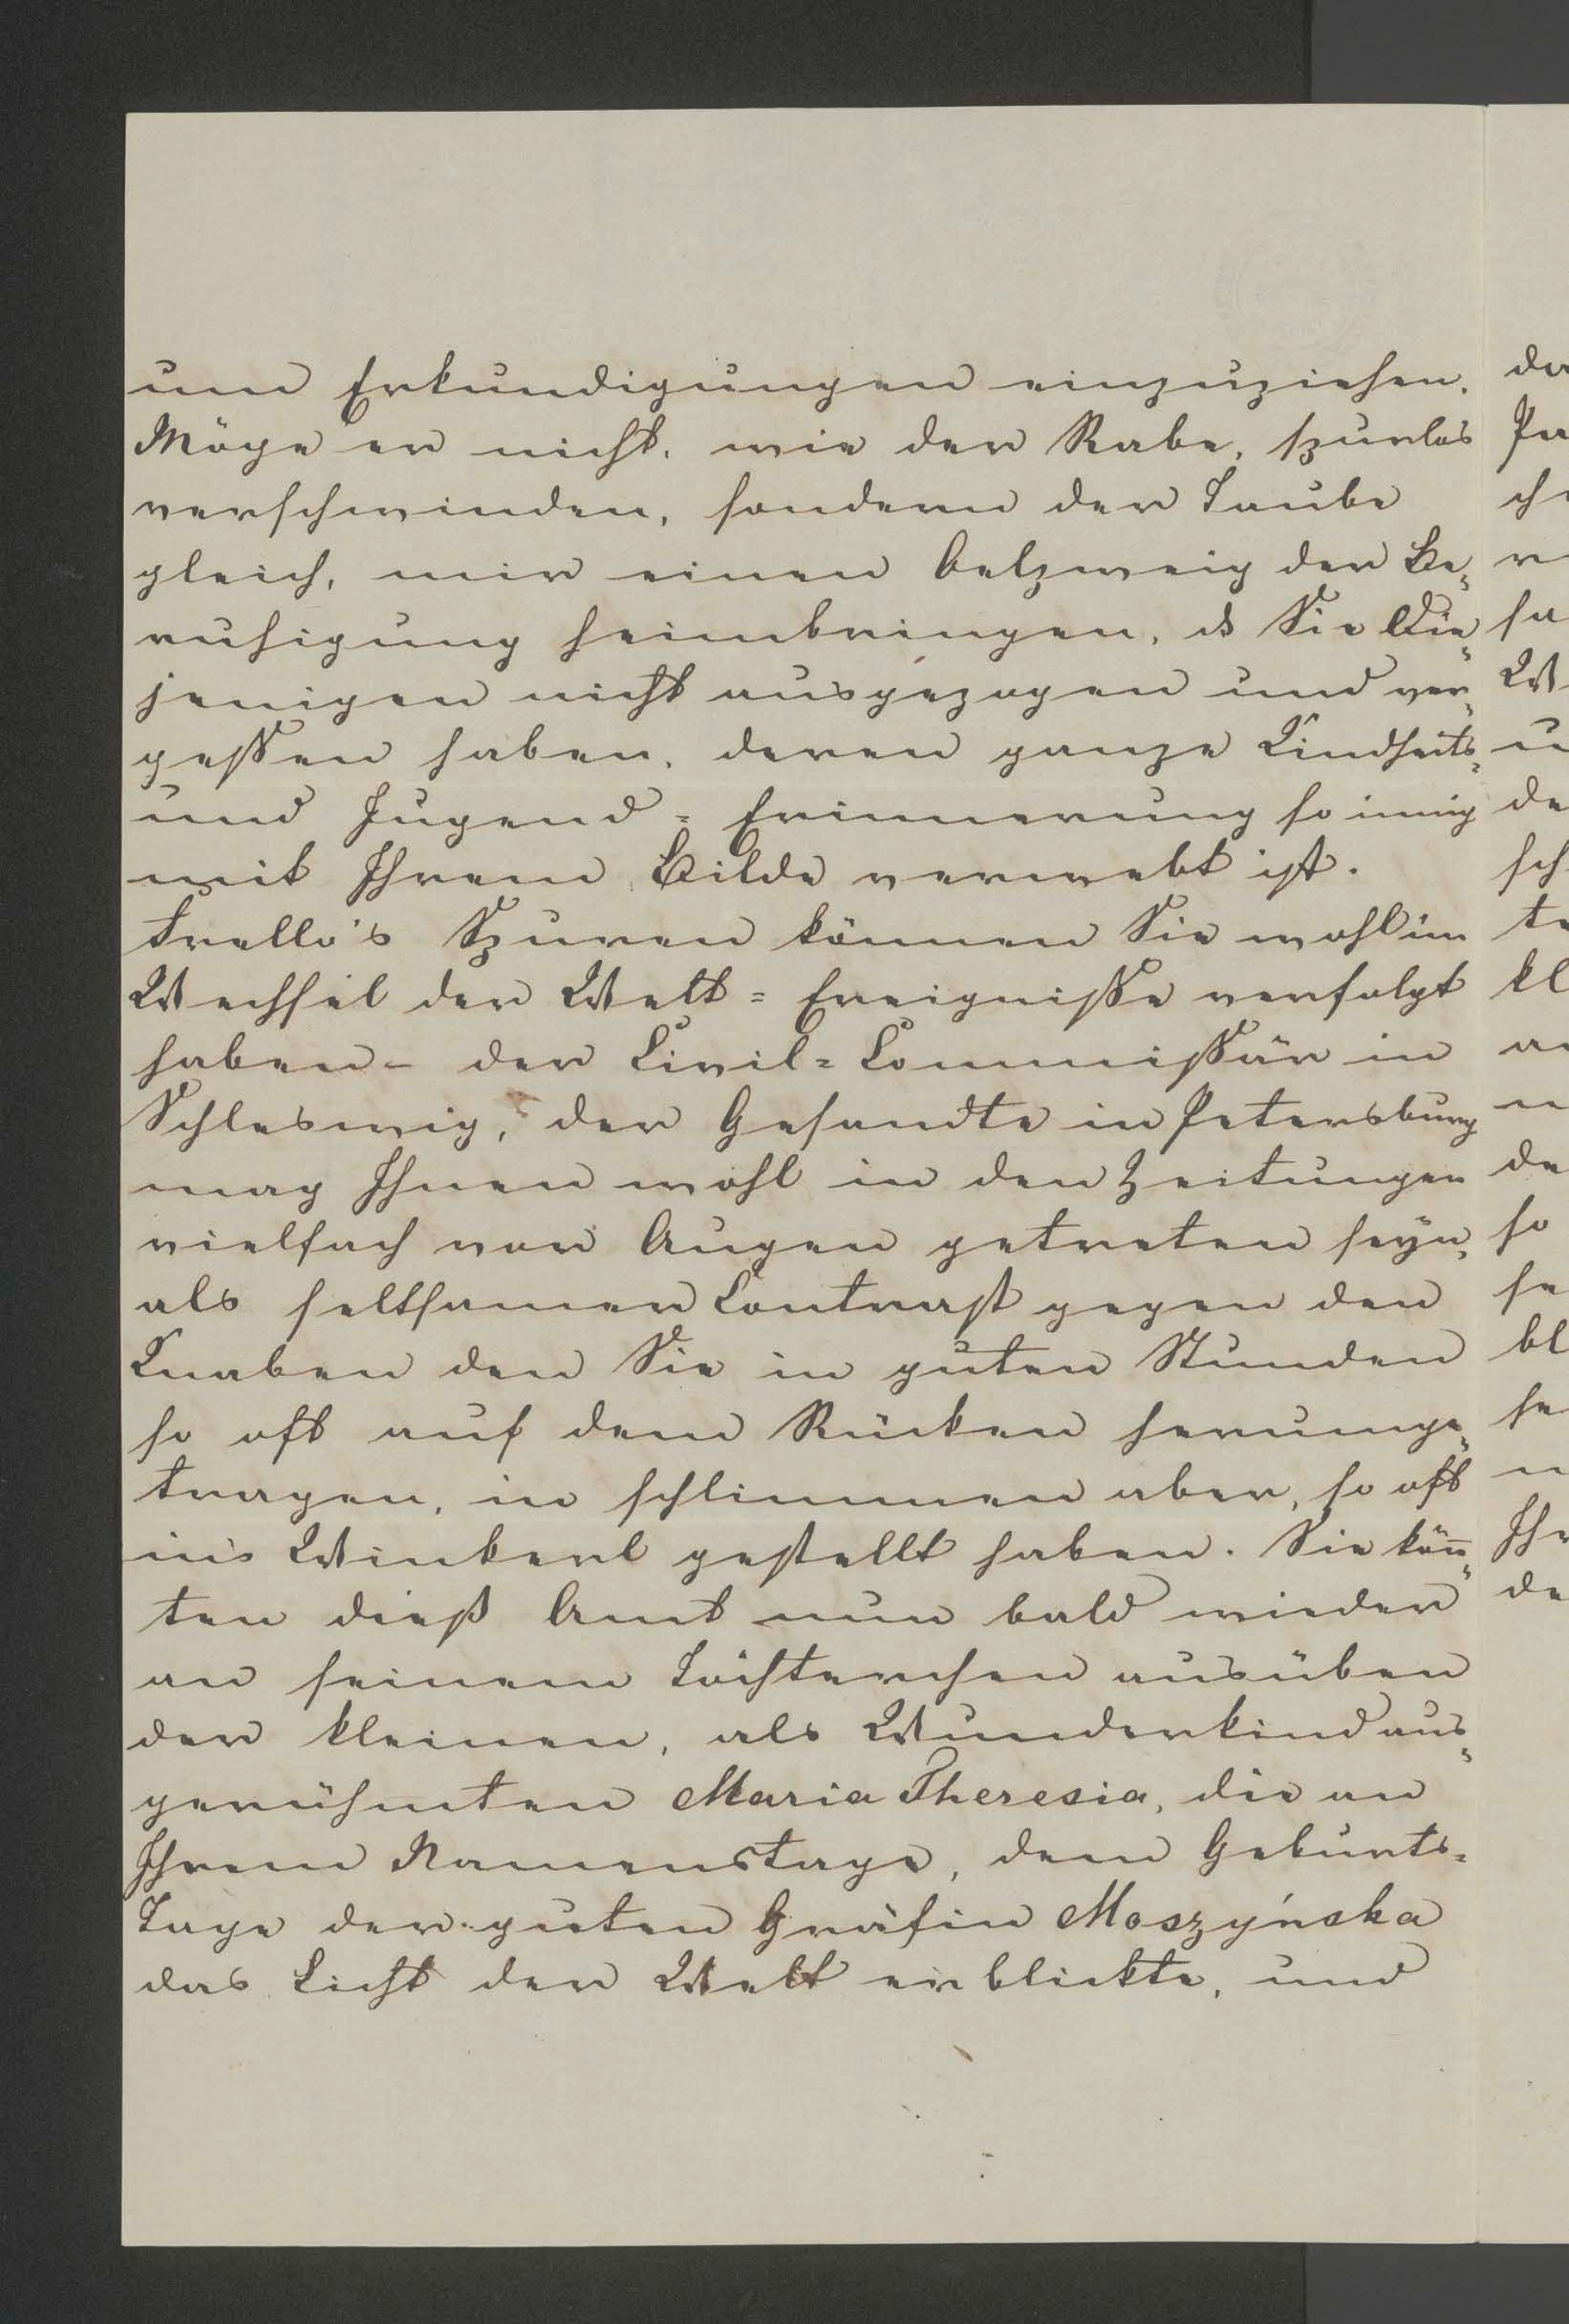 um Erkundigungen einzuziehen.
Möge er nicht, wie der Rabe, spurlos
verschwinden, sondern der Taube
gleich, mir einen Oelzweig der Be=
ruhigung heimbringen, ds Sie Die=
jenigen nicht ausgezogen und ver=
geßen haben, deren ganze Kindheits=
und Jugend = Erinnerung so innig
mit Ihrem Bilde verwebt ist.
Frello's Spuren können Sie wohl im
Wechsel der Welt = Ereigniße verfolgt
haben – der Civil = Commißär in
Schleswig, der Gesandte in Petersburg
mag Ihnen wohl in den Zeitungen
vielfach vor Augen getreten seyn,
als seltsamer Contrast gegen den
Knaben den Sie in guten Stunden
so oft auf dem Rücken herumge=
tragen, in schlimmen aber, so oft
in's Winkerl gestellt haben. Sie kön̄=
ten dieß Amt nun bald wieder
an seinem Töchterchen ausüben
der kleinen, als Wunderkind aus=
gerühmten Maria Theresia, die an
Ihrem Namenstage, dem Geburts=
Tage der guten Gräfin Moszyńska
das Licht der Welt erblickte, und